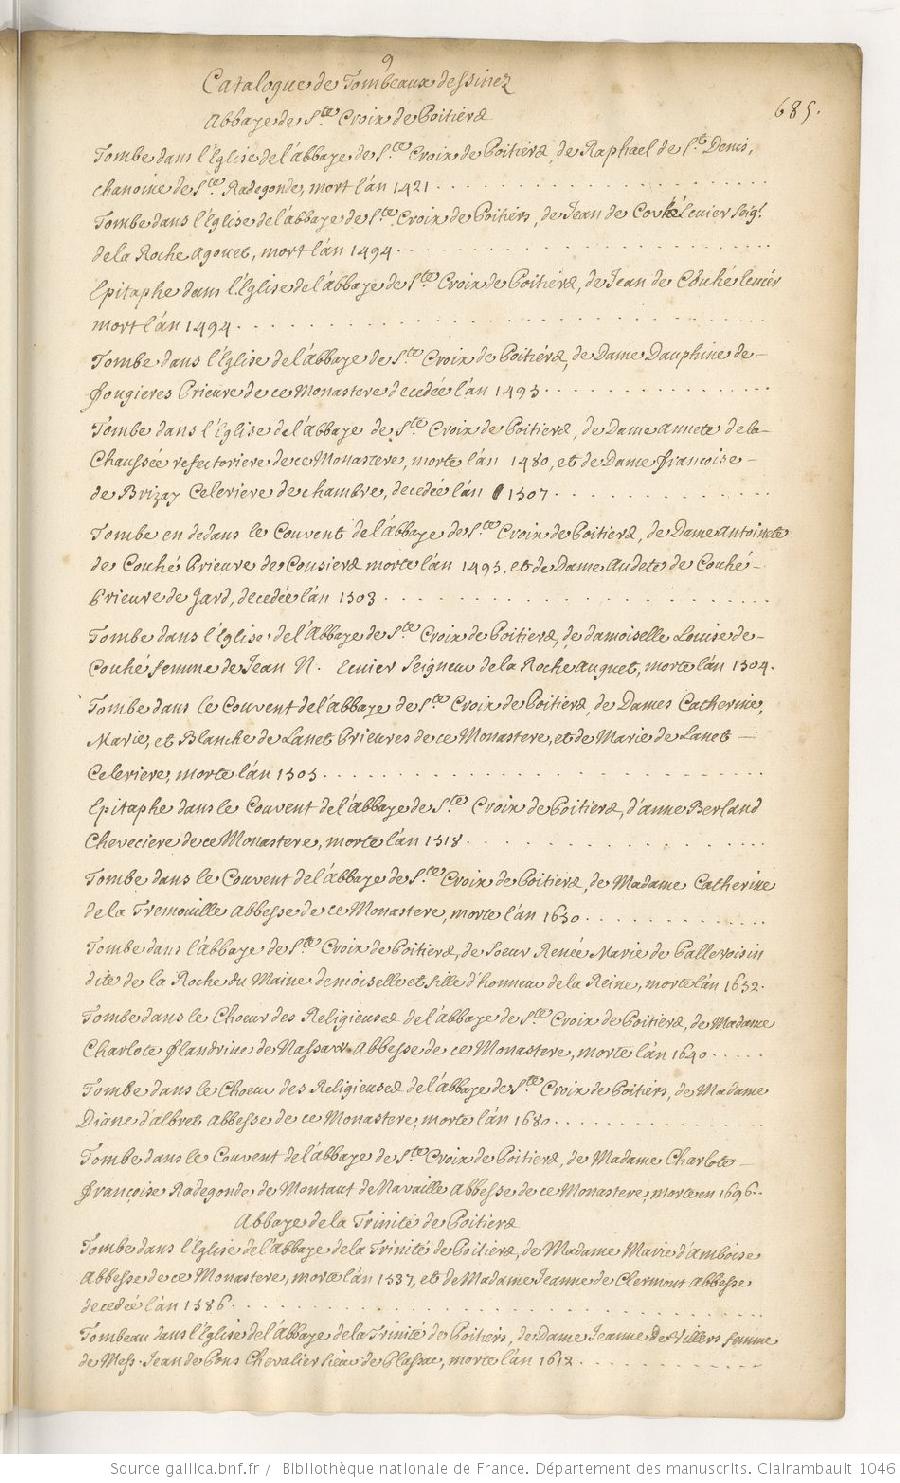 9
Catalogue de Tombeaux dessinez
685.
Abbaye de Ste Croix de Poitiers
Tombe dans l'Eglise de l'abbaye de Ste Croix de Poitiers, de Raphael de St Denis,
chanoine de Ste Radegonde, mort l'an 1421
Tombe dans l'Eglise de l'abbaye de Ste Croix de Poitiers, de Jean de Couhé Ecuier Seigr
de la Roche agouet, mort l'an 1494
Epitaphe dans l'Eglise de l'abbaye de Ste Croix de Poitiers, de Jean de Couhé Ecuier
mort l'an 1494
Tombe dans l'Eglise de l'abbaye de Ste Croix de Poitiers, de Dame Dauphine de
fougieres Prieure de ce Monastere decedée l'an 1495
Tombe dans l'Eglise de l'abbaye de Ste Croix de Poitiers, de Dame annete de la
Chaussée refectoriere de ce Monastere, morte l'an 1480, et de Dame françoise
de Brizay Celeriere de chambre, decedée l'an 1507
Tombe en dedans le Couvent de l'Abbaye de Ste Croix de Poitiers, de Dame antoinete
de Couhé Prieure de Cousiers morte l'an 1495. et de Dame Audete de Couhé
Prieure de Jard, decedée l'an 1508
Tombe dans l'Eglise de l'Abbaye de Ste Croix de Poitiers, de damoiselle Louise de
Couhé femme de Jean N. Ecuier Seigneur de la Roche auguet, morte l'an 1504.
Tombe dans le Couvent de l'abbaye de Ste Croix de Poitiers, de Dames Catherine,
Marie, et Blanche de Lanet Prieures de ce Monastere, et de Marie de Lanet
Celeriere, morte l'an 1505
Epitaphe dans le Couvent de l'abbaye de Ste Croix de Poitiers, d'anne Berland
Cheveciere de ce Monastere, morte l'an 1518
Tombe dans le Couvent de l'abbaye de Ste Croix de Poitiers, de Madame Catherine
de la Tremouille abbesse de ce Monastere, morte l'an 1650
Tombe dans l'abbaye de Ste Croix de Poitiers, de Soeur Renée Marie de Vallevoisin
dite de la Roche du Maine demoiselle et fille d'honneur de la Reine, morte l'an 1652.
Tombe dans le Choeur des Religieuses de l'abbaye de Ste Croix de Poitiers, de Madame
Charlote flandrine de Nassau abbesse de ce Monastere, morte l'an 1640
Tombe dans le Choeur des Religieuses de l'abbaye de Ste Croix de Poitiers, de Madame
Diane d'albret abbesse de ce Monastere, morte l'an 1680
Tombe dans le Couvent de l'abbaye de Ste Croix de Poitiers, de Madame Charlote
françoise Radegonde de Montaut de Navaille abbesse de ce Monastere, morte en 1696
Abbaye de la Trinité de Poitiers
Tombe dans l'Eglise de l'abbaye de la Trinité de Poitiers, de Madame Marie d'amboise
abbesse de ce Monastere, morte l'an 1537, et de Madame Jeanne de Clermont abbesse
decedée l'an 1586
Tombeau dans l'Eglise de l'Abbaye de la Trinité de Poitiers, de Dame Jeanne de Villers femme
de Mess. Jean de Pons Chevalier sieur de Plassac, morte l'an 1612
Source gallica.bnf.fr / Bibliothèque nationale de France. Département des manuscrits. Clairambault 1046